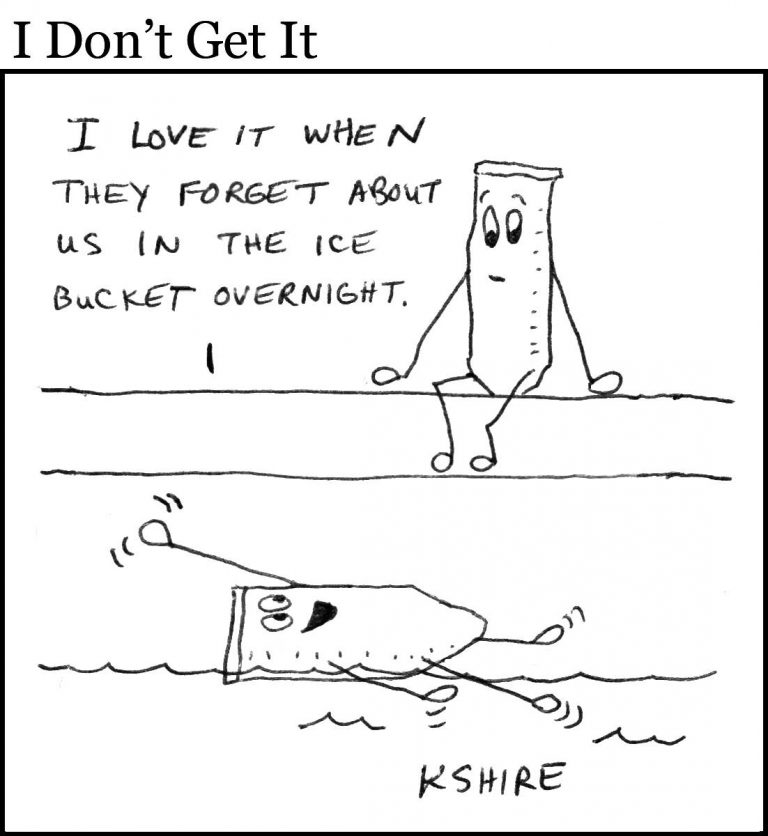 I Don't Get It
I LOVE IT WHEN
THEY FORGET ABOUT
US IN THE ICE
BUCKET OVERNIGHT.
KSHIRE